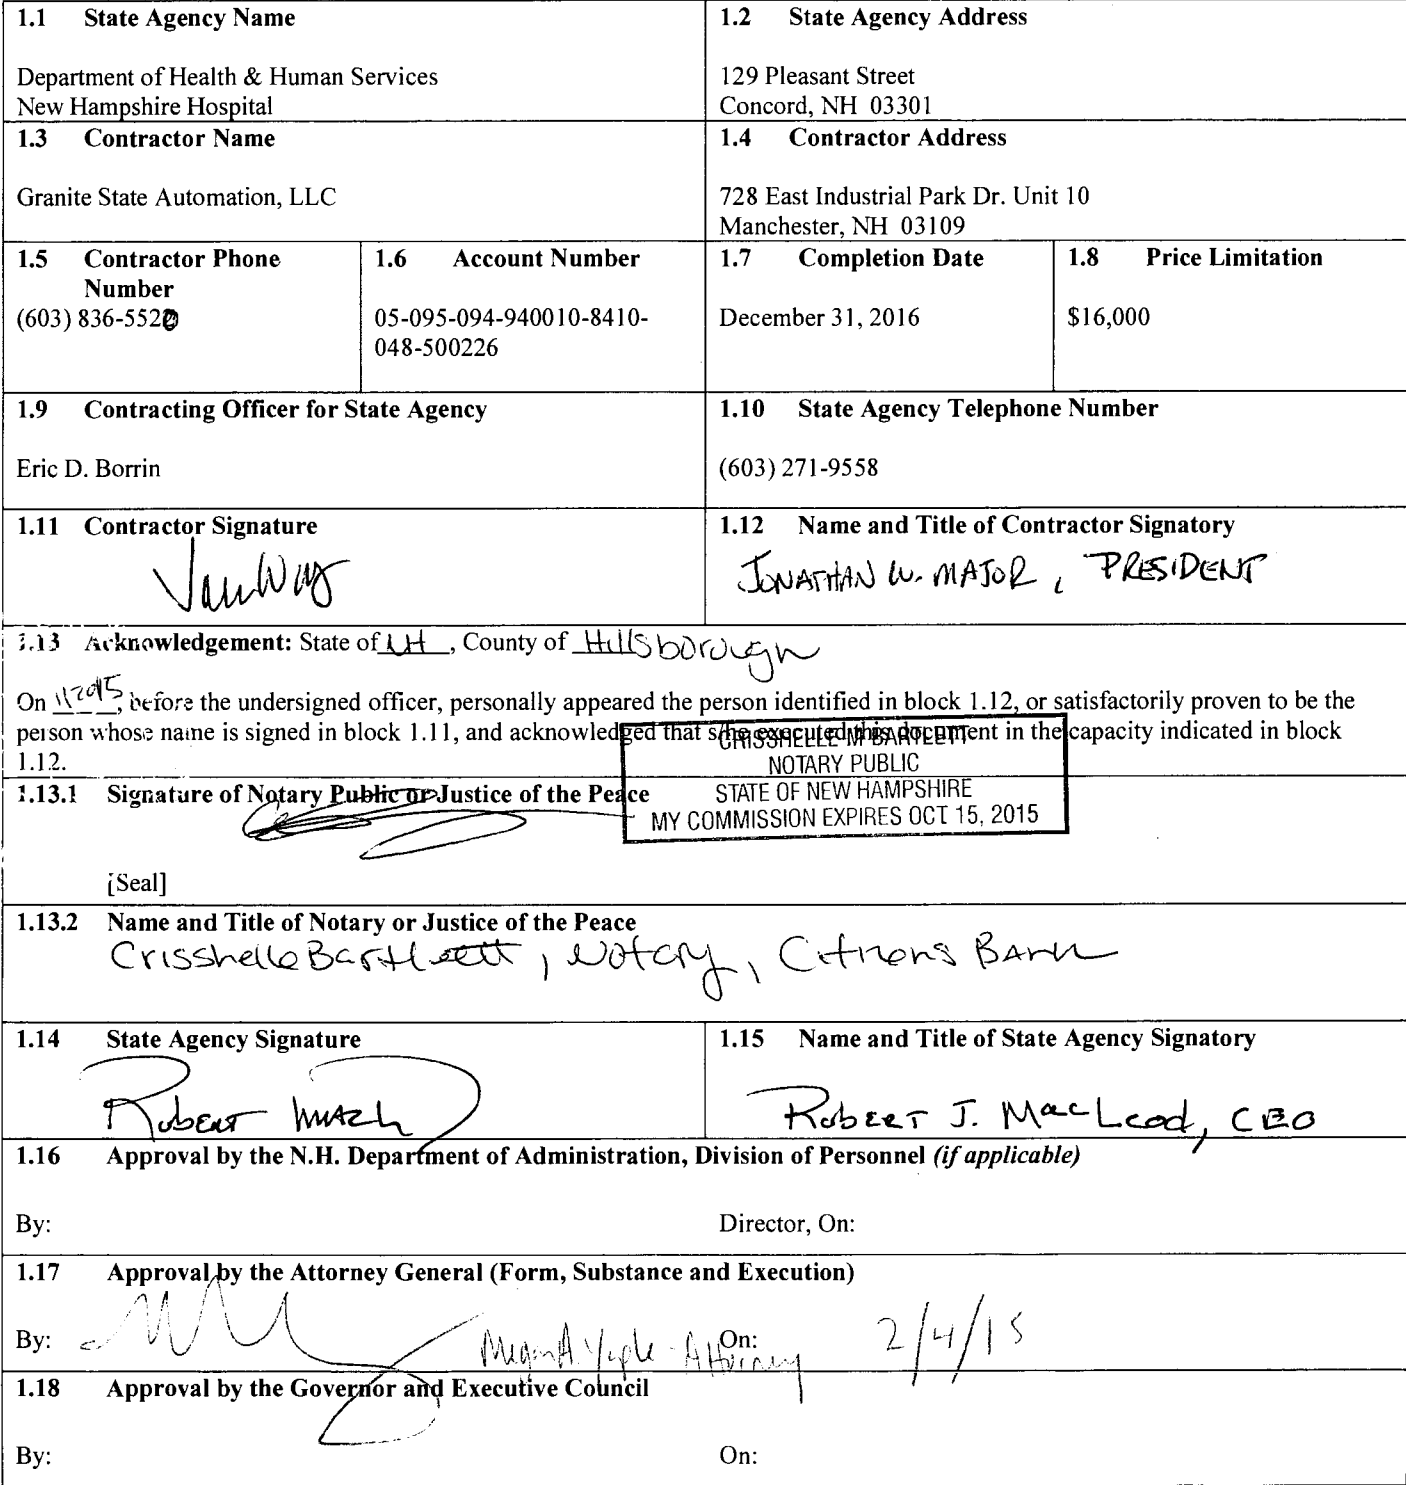 1.1 State Agency Name
Department of Health & Human Services
New Hampshire Hospital
1.2 State Agency Address
129 Pleasant Street
Concord, NH 03301
1.3 Contractor Name
Granite State Automation, LLC
1.4 Contractor Address
728 East Industrial Park Dr. Unit 10
Manchester, NH 03109
1.5 Contractor Phone
Number
(603) 836-5520
1.6 Account Number
05-095-094-940010-8410-
048-500226
1.7 Completion Date
December 31, 2016
1.8 Price Limitation
$16,000
1.9 Contracting Officer for State Agency
Eric D. Borrin
1.10 State Agency Telephone Number
(603) 271-9558
1.11 Contractor Signature
1.12 Name and Title of Contractor Signatory
JONATHAN W. MAJOR, PRESIDENT
1.13 Acknowledgement: State of NH, County of Hillsborough
On before the undersigned officer, personally appeared the person identified in block 1.12, or satisfactorily proven to be the
person whose name is signed in block 1.11, and acknowledged that s/he executed this document in the capacity indicated in block
1.12.
CRISSHELLE M BARTLETT
NOTARY PUBLIC
STATE OF NEW HAMPSHIRE
MY COMMISSION EXPIRES OCT 15, 2015
1.13.1 Signature of Notary Public or Justice of the Peace
[Seal]
1.13.2 Name and Title of Notary or Justice of the Peace
Crisshelle Bartlett, Notary, Citizens Bank
1.14 State Agency Signature
1.15 Name and Title of State Agency Signatory
Robert J. MacLeod, CEO
1.16 Approval by the N.H. Department of Administration, Division of Personnel (if applicable)
By: Director, On:
1.17 Approval by the Attorney General (Form, Substance and Execution)
By: Megan A. Yaple - Attorney On: 2/4/15
1.18 Approval by the Governor and Executive Council
By: On: